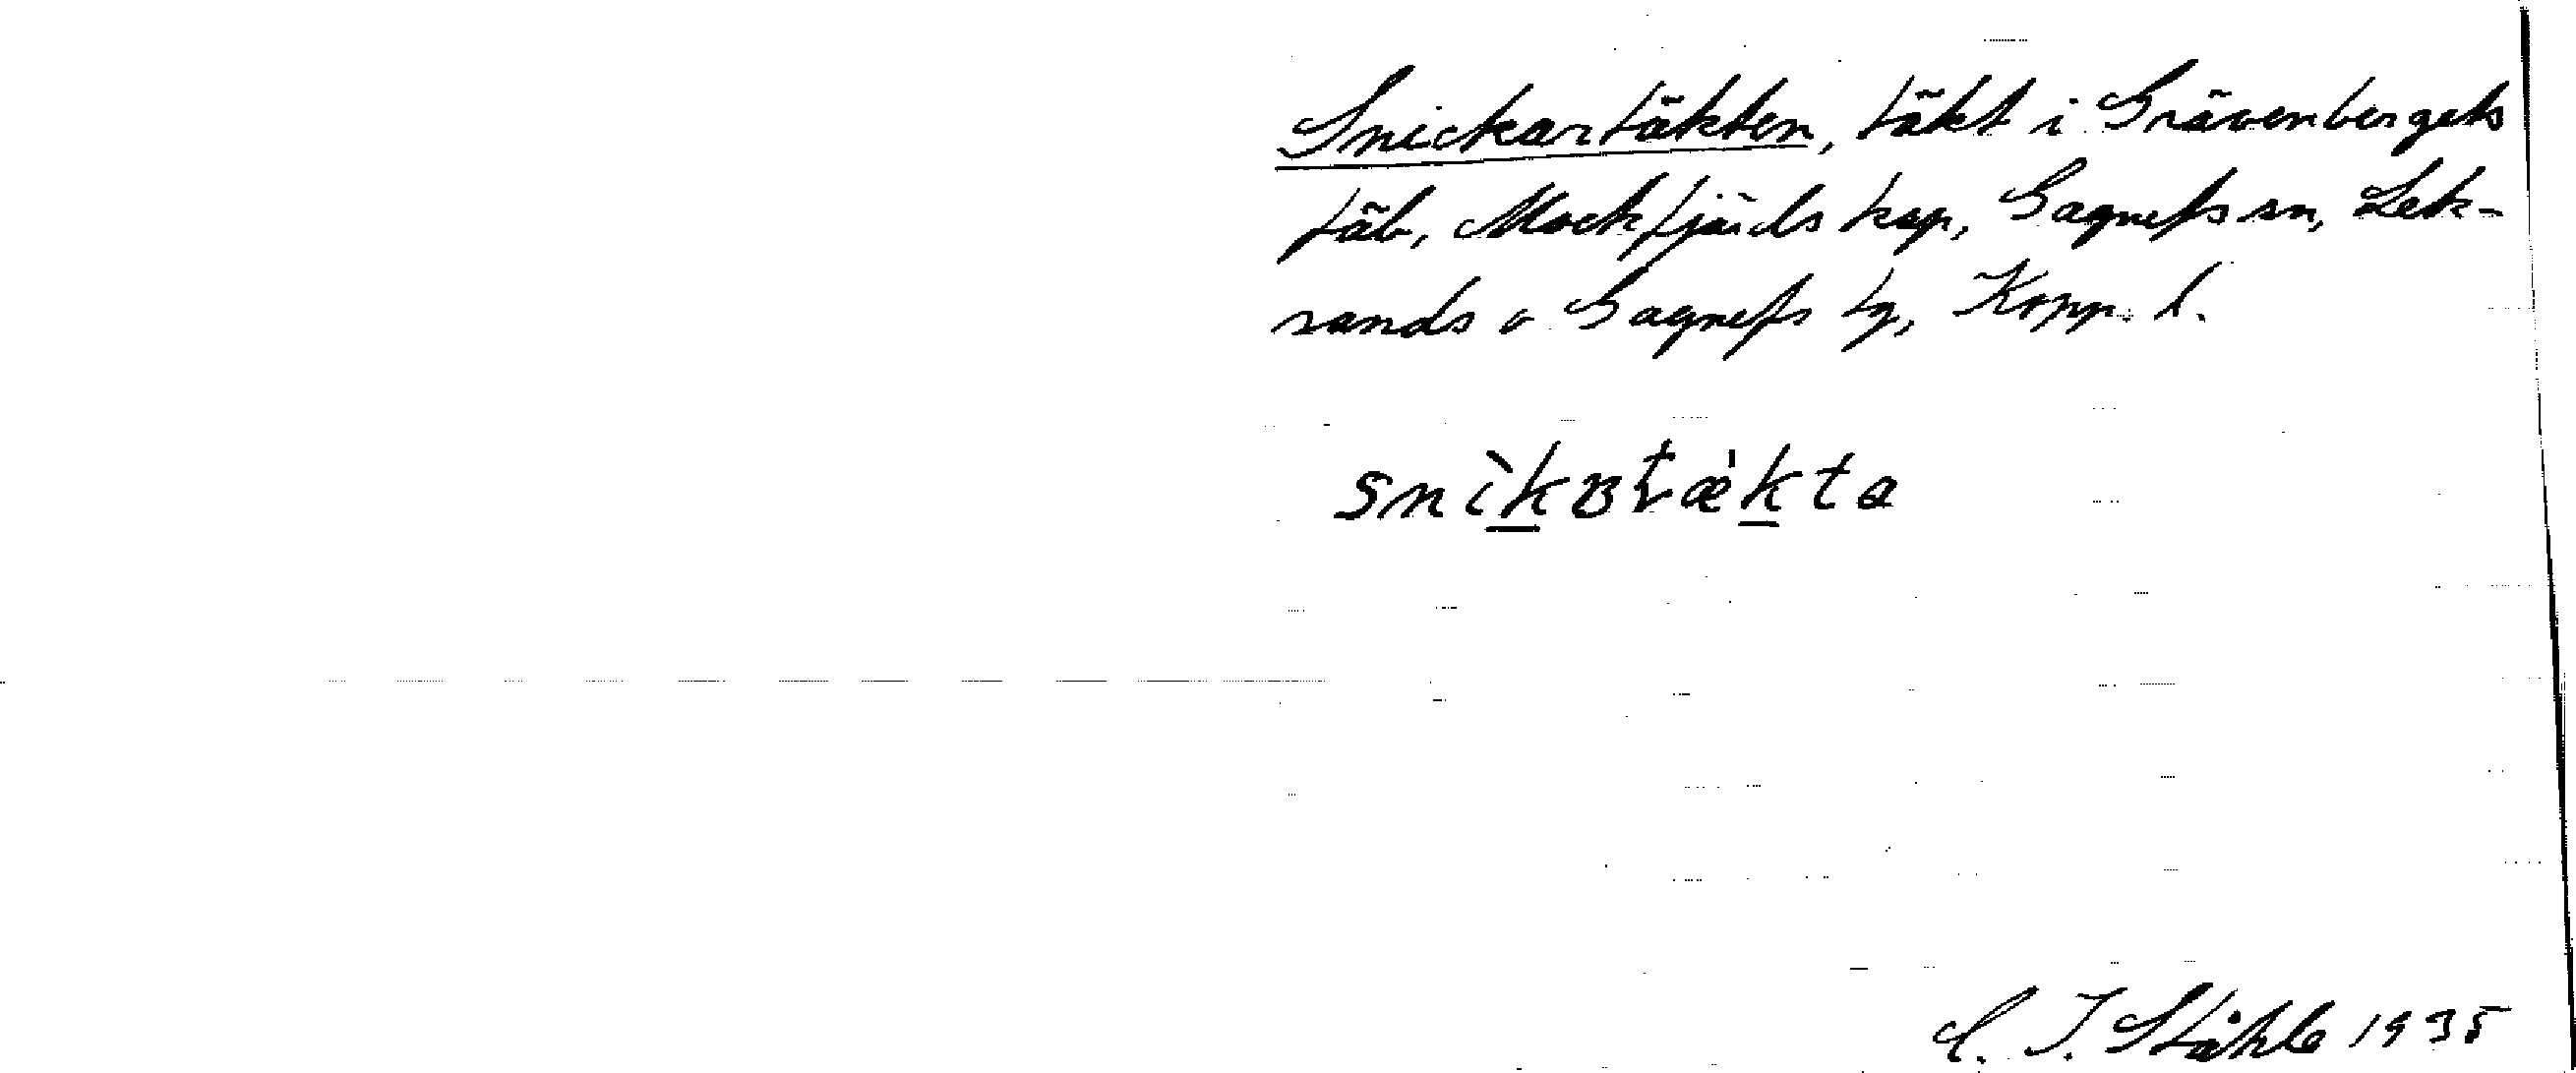 Snickartäkten, täkt i Grävenbergets
fäb, Mockfjärds kap, Gagnefs sn, Lek-
sands o Gagnefs tg, Kopp. l.
snìkʙtæ̀kta
C. I. Ståhle 1935